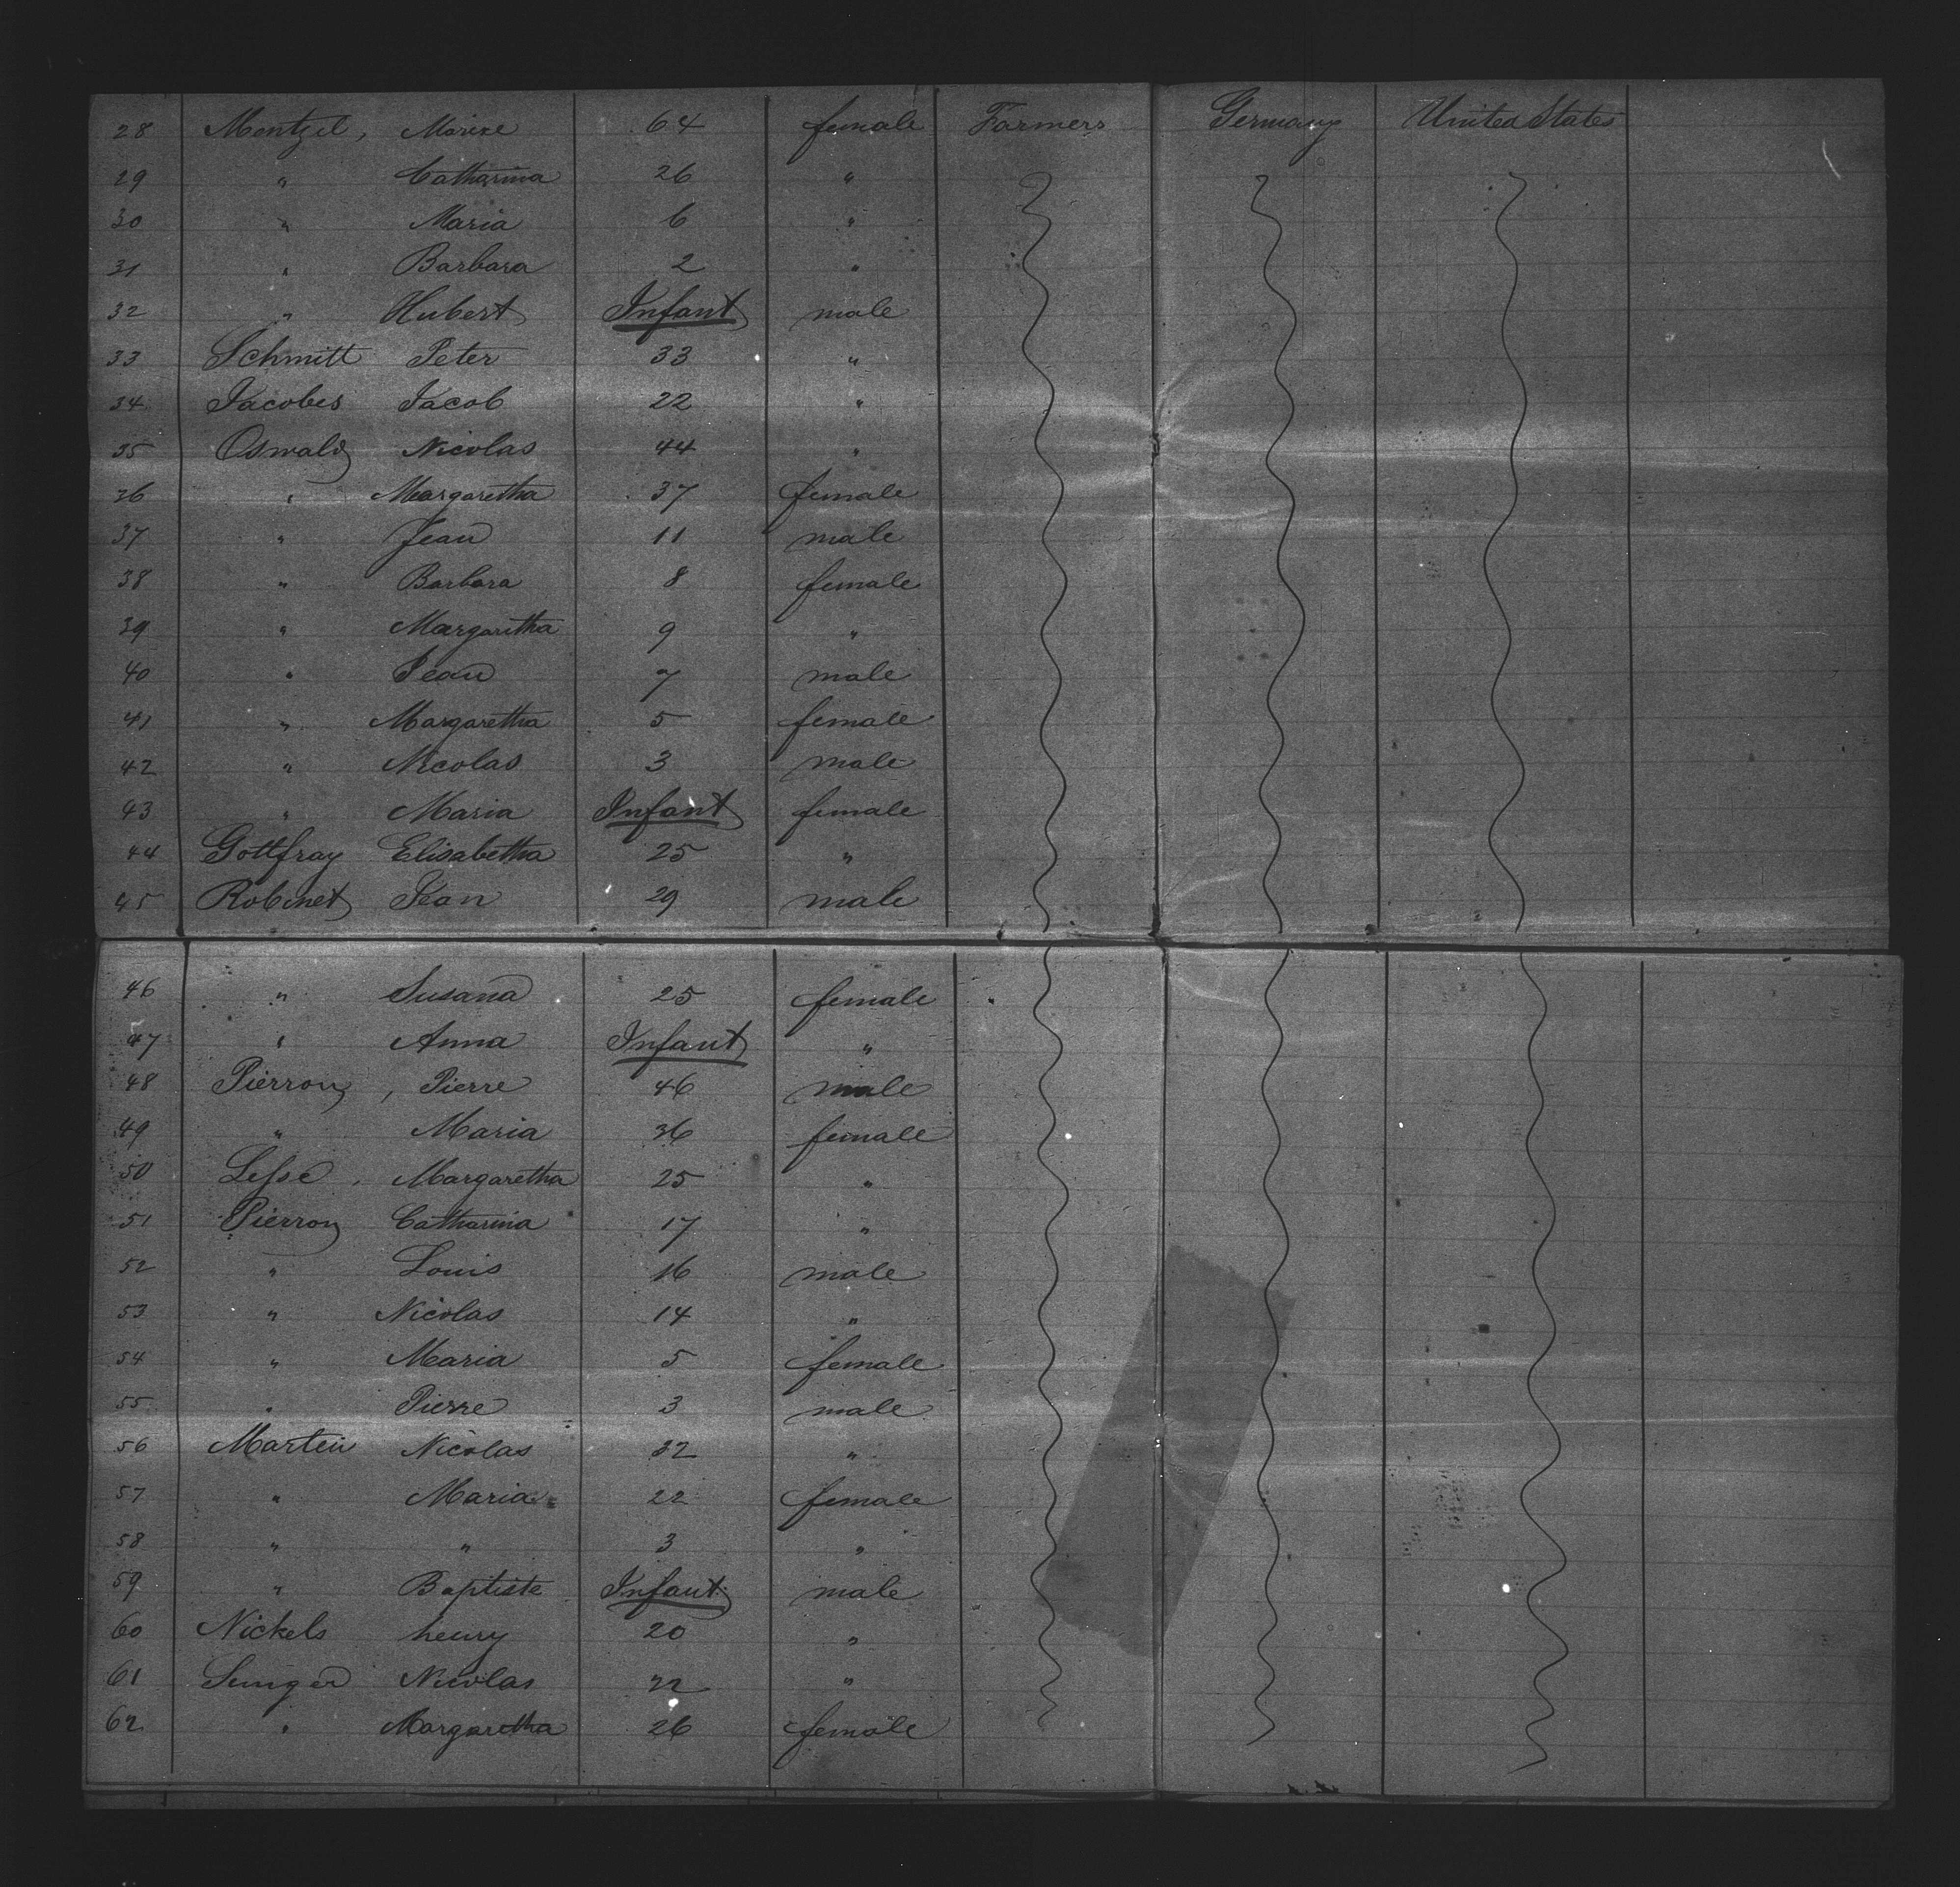 28 Mentzel, Marixe 64 female Farmers Germany United States
29 " Catharina 26 "
30 " Maria 6 "
31 " Barbara 2 "
32 " Hubert Infant male
33 Schmitt Peter 33 "
34 Jacobes Jacob 22 "
35 Oswald Nicolas 44 "
36 " Margaretha 37 female
37 " Jean 11 male
38 " Barbara 8 female
39 " Margaretha 9 "
40 " Jean 7 male
41 " Margaretha 5 female
42 " Nicolas 3 male
43 " Maria Infant female
44 Gottfray Elisabetha 25 "
45 Robinet Jean 29 male
46 " Susana 25 female
47 " Anna Infant "
48 Pierron, Pierre 46 male
49 " Maria 36 female
50 Lesse, Margaretha 25 "
51 Pierron Catharina 17 "
52 " Louis 16 male
53 " Nicolas 14 "
54 " Maria 5 female
55 " Pierre 3 male
56 Martin Nicolas 32 "
57 " Maria 22 female
58 " " 3 "
59 " Baptiste Infant male
60 Nickels henry 20 "
61 Nicolas 22 "
62 " Margaretha 26 female